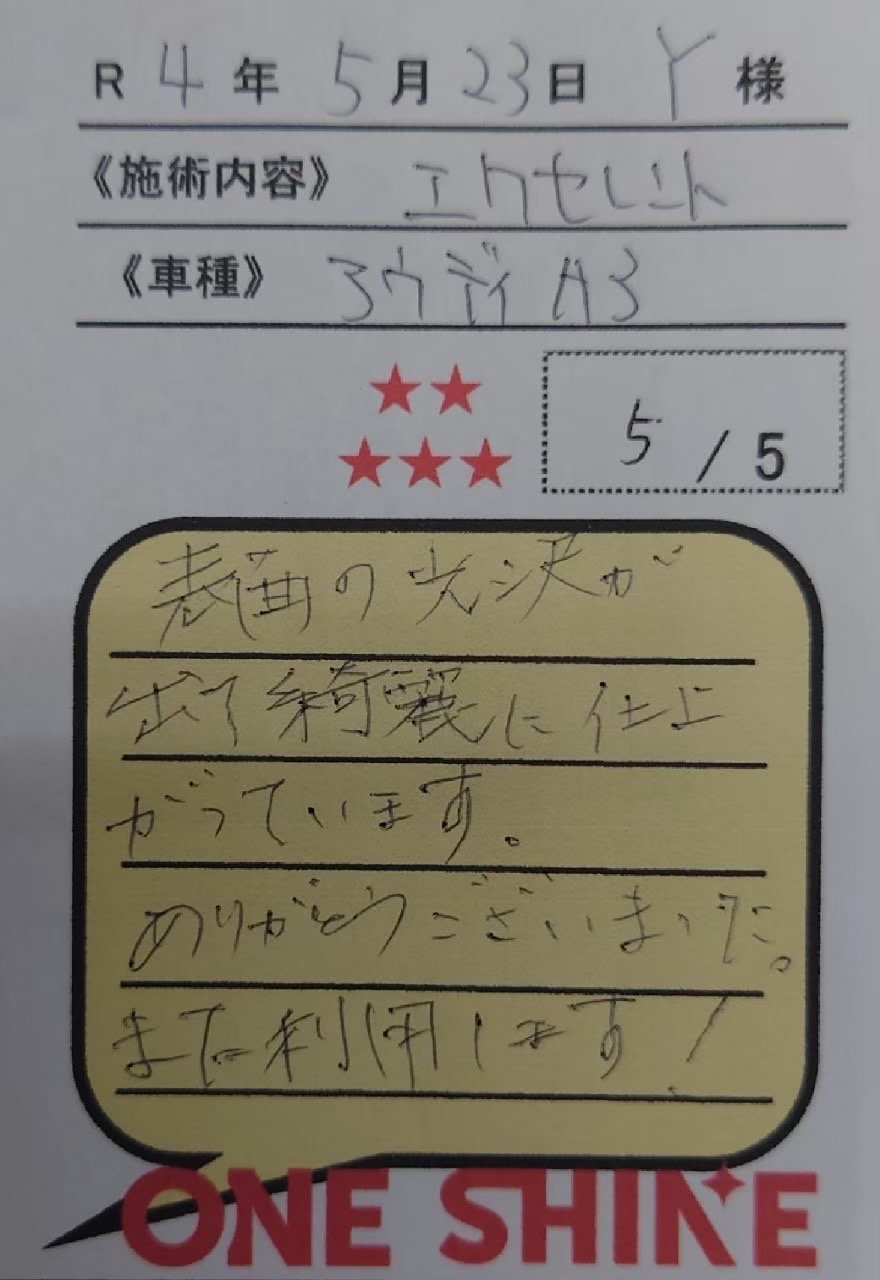 R 4 年 5 月 23 日 Y 様
《施術内容》 エクセレント
《車種》 アウディ A3
★★
★★★
5 / 5
表面の光沢が
出て綺麗に仕上
がっています。
ありがとうございました。
また利用します!
ONE SHINE